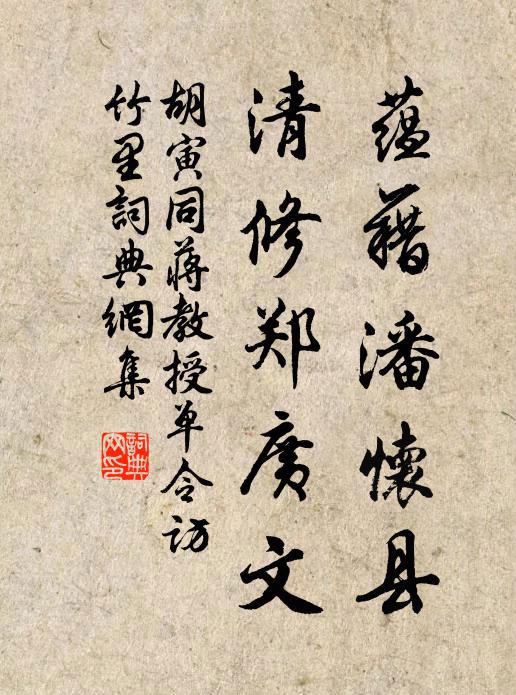 蕴藉潘懷县
清修郑廣文
胡寅同蒋教授单令访
竹里詞典網集
詞典网印